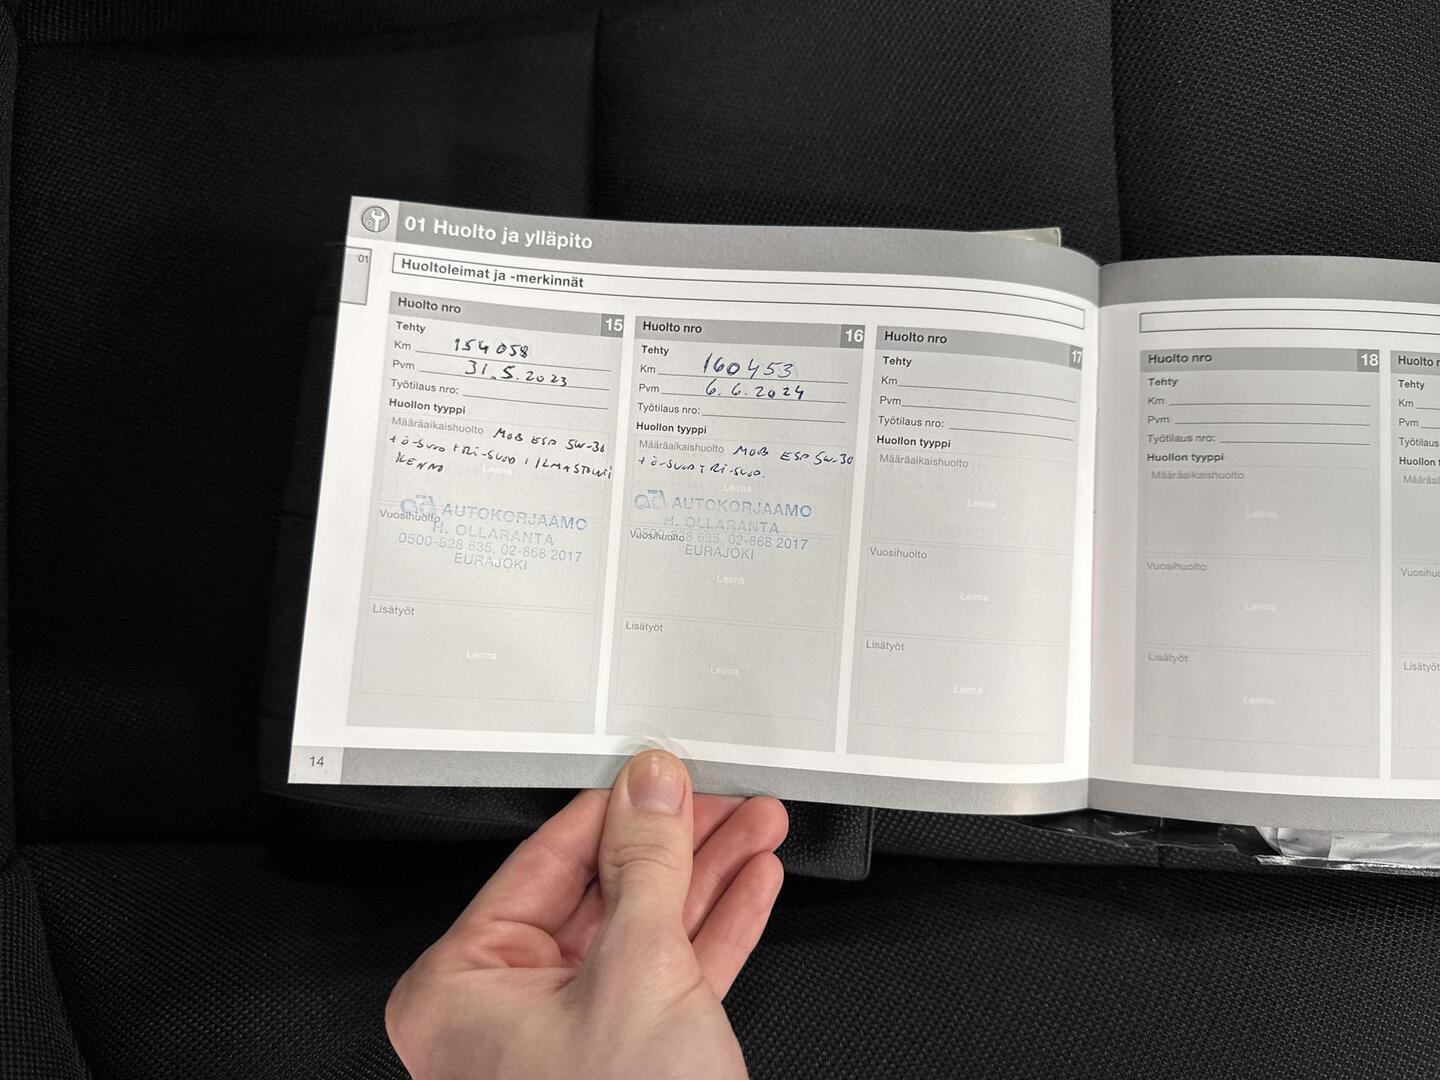 01 Huolto ja ylläpito
01
Huoltoleimat ja -merkinnät
Huolto nro 15
Tehty
Km 154 058
Pvm 31.5.2023
Työtilaus nro:
Huollon tyyppi
Määräaikaishuolto MOB ESP 5W-30
+ ö-suod + Ri-suod, ILMASTOINTI
KENNO
Leima
ad AUTOKORJAAMO
Vuosihuolto
H. OLLARANTA
0500-828 635, 02-868 2017
EURAJOKI
Lisätyöt
Leima
Huolto nro 16
Tehty
Km 160453
Pvm 6.6.2024
Työtilaus nro:
Huollon tyyppi
Määräaikaishuolto MOB ESP 5W-30
+ ö-suod + Ri-suod.
Leima
ad AUTOKORJAAMO
H. OLLARANTA
Vuosihuolto
0500-828 635, 02-868 2017
EURAJOKI
Leima
Lisätyöt
Leima
Huolto nro 17
Tehty
Km
Pvm
Työtilaus nro:
Huollon tyyppi
Määräaikaishuolto
Leima
Vuosihuolto
Leima
Lisätyöt
Leima
14
Huolto nro 18
Tehty
Km
Pvm
Työtilaus nro:
Huollon tyyppi
Määräaikaishuolto
Leima
Vuosihuolto
Leima
Lisätyöt
Leima
Huolto
Tehty
Km
Pvm
Työtilaus